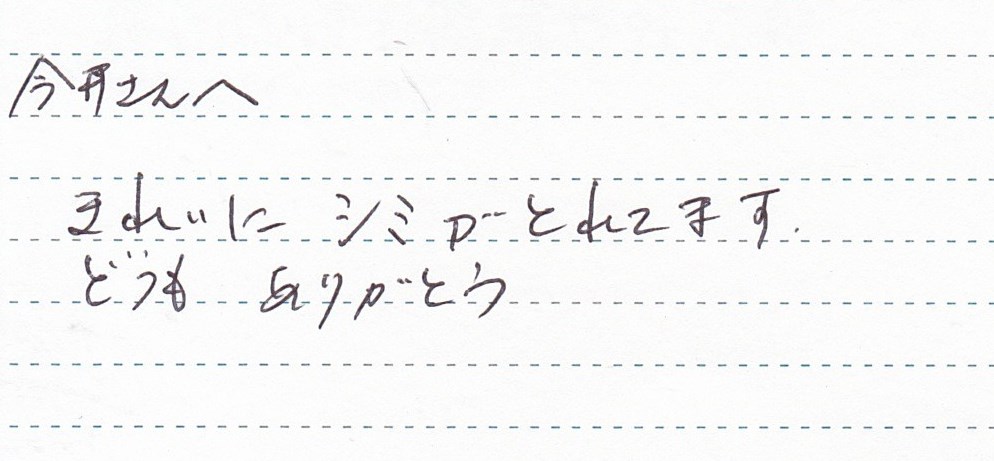 今井さんへ
きれいに シミがとれてます.
どうも ありがとう